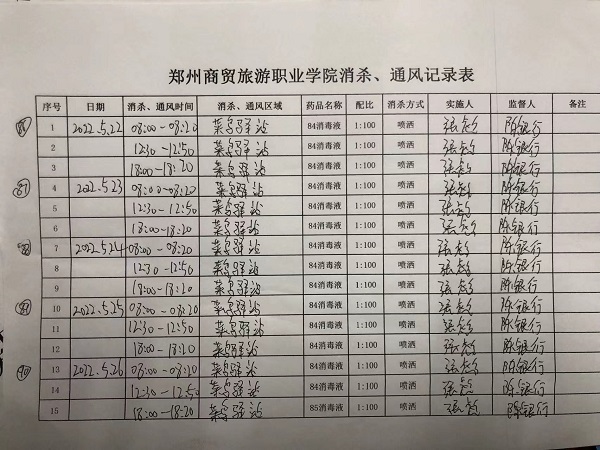 郑州商贸旅游职业学院消杀、通风记录表
序号 日期 消杀、通风时间 消杀、通风区域 药品名称 配比 消杀方式 实施人 监督人 备注
1 2022.5.22 08:00-08:20 菜鸟驿站 84消毒液 1:100 喷洒 张彪 陈银行
2 12:30-12:50 菜鸟驿站 84消毒液 1:100 喷洒 张彪 陈银行
3 18:00-18:20 菜鸟驿站 84消毒液 1:100 喷洒 张彪 陈银行
87 4 2022.5.23 08:00-08:20 菜鸟驿站 84消毒液 1:100 喷洒 张彪 陈银行
5 12:30-12:50 菜鸟驿站 84消毒液 1:100 喷洒 张彪 陈银行
6 18:00-18:20 菜鸟驿站 84消毒液 1:100 喷洒 张彪 陈银行
7 2022.5.24 08:00-08:20 菜鸟驿站 84消毒液 1:100 喷洒 张彪 陈银行
8 12:30-12:50 菜鸟驿站 84消毒液 1:100 喷洒 张彪 陈银行
9 18:00-18:20 菜鸟驿站 84消毒液 1:100 喷洒 张彪 陈银行
10 2022.5.25 08:00-08:20 菜鸟驿站 84消毒液 1:100 喷洒 张彪 陈银行
11 12:30-12:50 菜鸟驿站 84消毒液 1:100 喷洒 张彪 陈银行
12 18:00-18:20 菜鸟驿站 84消毒液 1:100 喷洒 张彪 陈银行
13 2022.5.26 08:00-08:20 菜鸟驿站 84消毒液 1:100 喷洒 张彪 陈银行
14 12:30-12:50 菜鸟驿站 84消毒液 1:100 喷洒 张彪 陈银行
15 18:00-18:20 菜鸟驿站 85消毒液 1:100 喷洒 张彪 陈银行